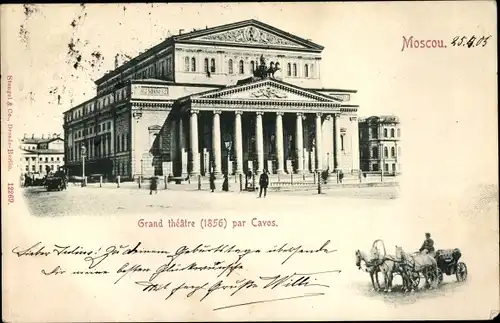 Moscou. 25.4.05
Stengel & Co., Dresde-Berlin 12269.
Grand théâtre (1856) par Cavos.
Lieber Zu Deinem Geburtstage übersende
Dir meine besten Glückwünsche
Mit Gruße Willi